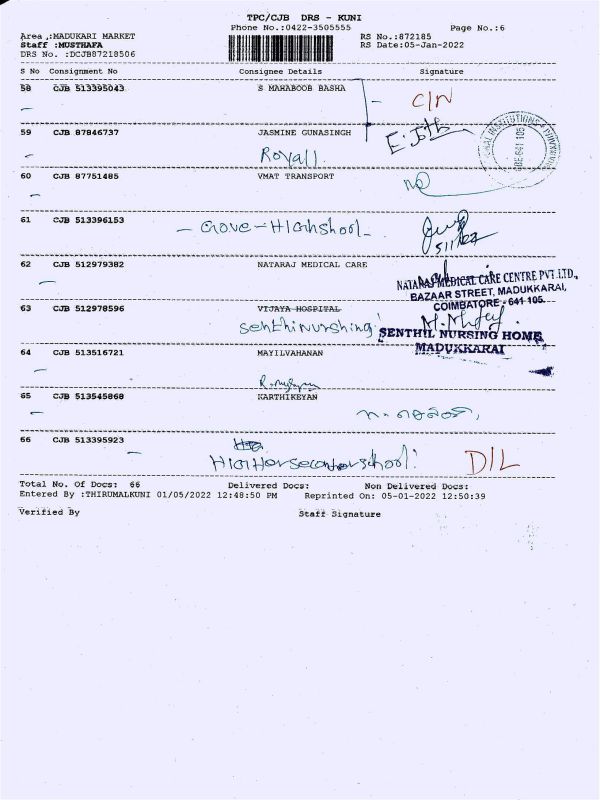 TPC/CJB DRS - KUNI
Phone No.:0422-3505555
Page No.:6
Area :MADUKARI MARKET
RS No.:872185
Staff :MUSTHAFA
RS Date:05-Jan-2022
DRS No. :DCJB87218506
S No Consignment No Consignee Details Signature
58 CJB 513395043 S MAHABOOB BASHA
C/N
59 CJB 87846737 JASMINE GUNASINGH
Royall
60 CJB 87751485 VMAT TRANSPORT
61 CJB 513396153
5/1/22
62 CJB 512979382 NATARAJ MEDICAL CARE
NATARAJ MEDICAL CARE CENTRE PVT.LTD.,
BAZAAR STREET, MADUKKARAI,
COIMBATORE - 641 105.
63 CJB 512978596 VIJAYA HOSPITAL
SENTHIL NURSING HOME
MADUKKARAI
64 CJB 513516721 MAYILVAHANAN
65 CJB 513545868 KARTHIKEYAN
66 CJB 513395923
D/L
Total No. Of Docs: 66 Delivered Docs: Non Delivered Docs:
Entered By :THIRUMALKUNI 01/05/2022 12:48:50 PM Reprinted On: 05-01-2022 12:50:39
Verified By Staff Signature